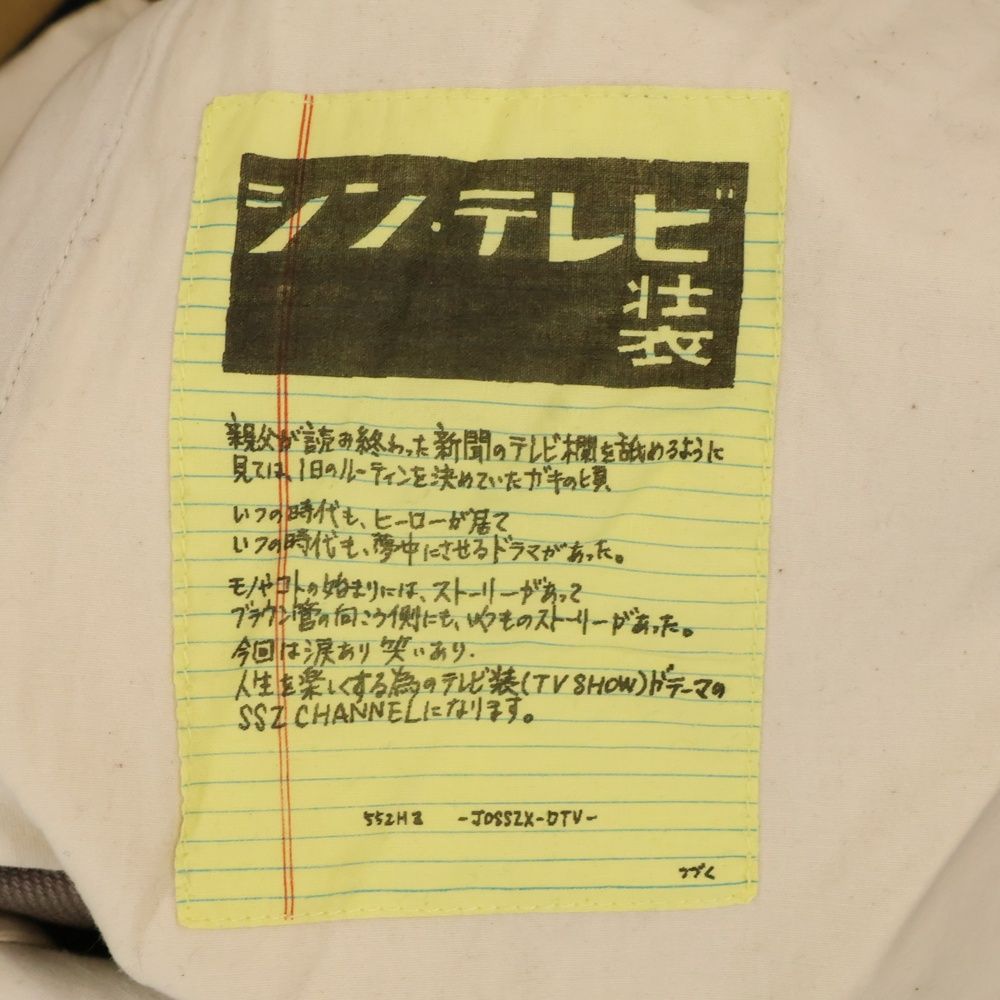 シン・テレビ
装
親父が読み終わった新聞のテレビ欄を舐めるように
見ては、1日のルーティンを決めていたガキの頃
いつの時代も、ヒーローが居て
いつの時代も、夢中にさせるドラマがあった。
モノやコトの始まりには、ストーリーがあって
ブラウン管の向こう側にも、いつものストーリーがあった。
今回は涙あり 笑いあり.
人生を楽しくする為のテレビ装(TV SHOW)がテーマの
SSZ CHANNELになります。
552HZ -JOSSZX-DTV-
つづく